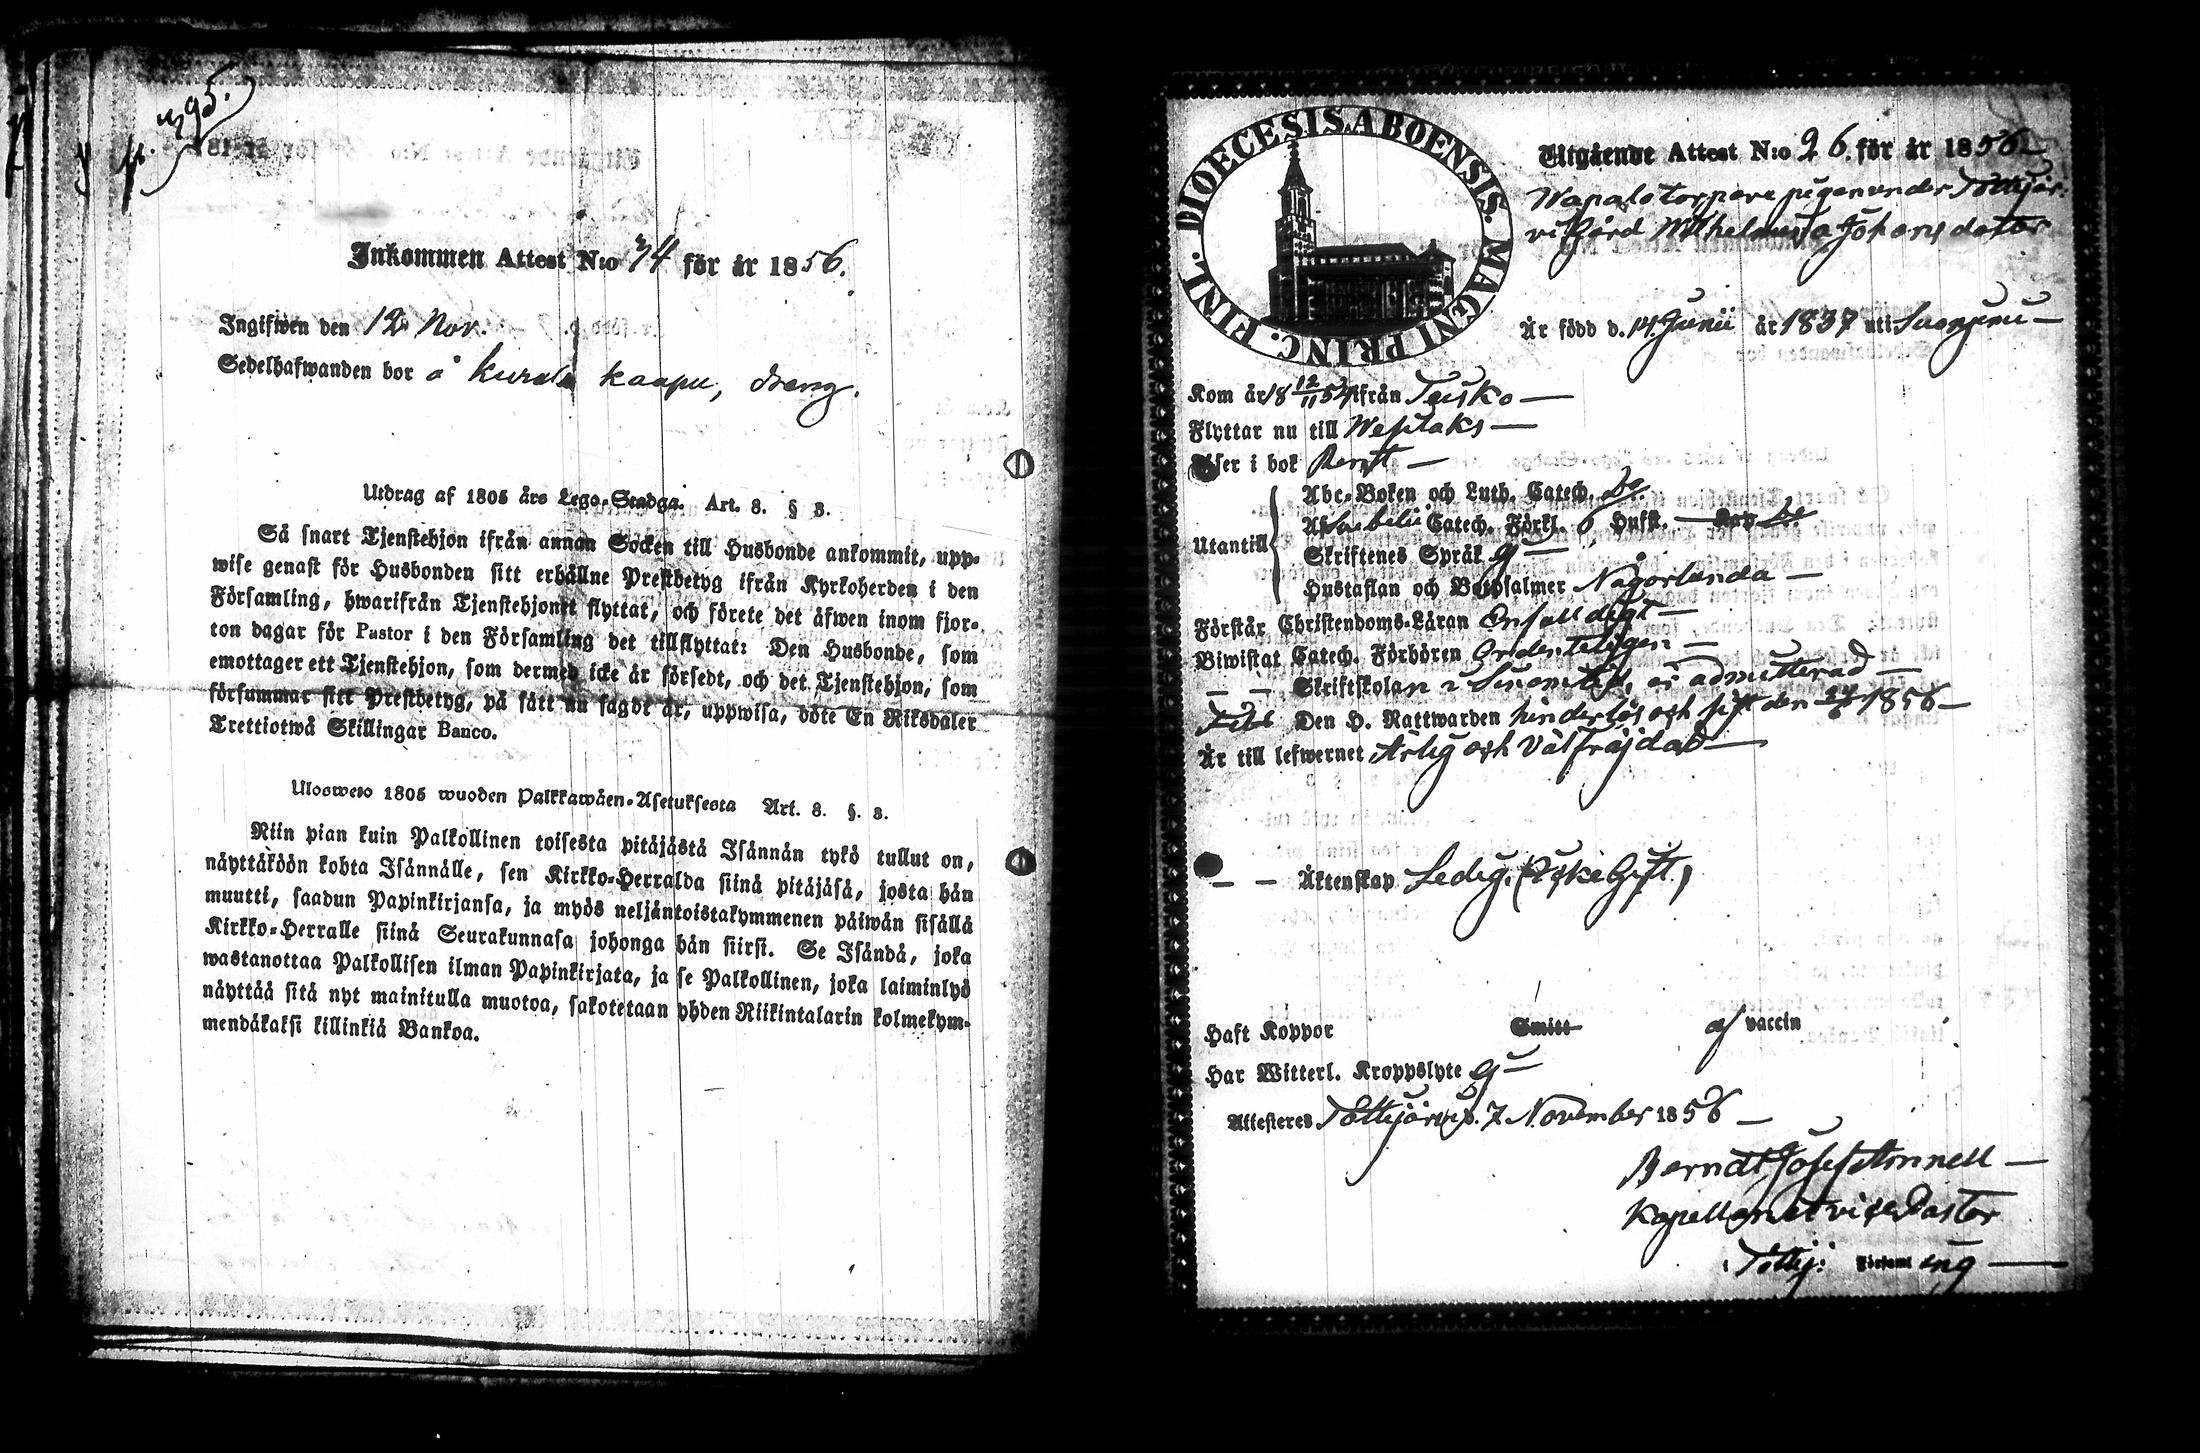 p. 395.
Inkommen Attest N:o 74 för år 1856.
Ingifwen den 12 Nov.
Sedelhafwanden bor å Kurala Kaapu, dreng.
Utdrag af 1805 års Lego-Stadga. Art. 8. § 3.
Så snart Tjenstehjon ifrån annan Socken till Husbonde ankommit, upp-
wise genast för Husbonden sitt erhållne Prestbetyg ifrån Kyrkoherden i den
Församling, hwarifrån Tjenstehjonet flyttat, och förete det äfwen inom fjor-
ton dagar för Pastor i den Församling det tillflyttat: Den Husbonde, som
emottager ett Tjenstehjon, som dermed icke är försedt, och det Tjenstehjon, som
försummar sitt Prestbetyg, på sätt nu sagdt är, uppwisa, böte En Riksdaler
Trettiotwå Skillingar Banco.
Ulosweto 1805 wuoden Palkkawäen-Asetuksesta Art. 8. §. 3.
Niin pian kuin Palkollinen toisesta pitäjästä Isännän tykö tullut on,
näyttäköön kohta Isännälle, sen Kirkko-Herralda siinä pitäjäsä, josta hän
muutti, saadun Papinkirjansa, ja myös neljäntoistakymmenen päiwän sisällä
Kirkko-Herralle siinä Seurakunnasa johonga hän siirsi. Se Isändä, joka
wastanottaa Palkollisen ilman Papinkirjata, ja se Palkollinen, joka laiminlyö
näyttää sitä nyt mainitulla muotoa, sakotetaan yhden Riikintalarin kolmekym-
mendäkaksi killinkiä Bankoa.
DIOECESIS ABOENSIS. MAGNI PRINC. FINL.
Utgående Attest N:o 26. för år 1856
Wapalo torpare pigan under Töttijär-
vi Gård Wilhelmina Johansdotter
Är född d. 14 Junii år 1837 uti Suoniemi
Kom år 18 12/11 54 ifrån Teisko
Flyttar nu till Wesilaks
Läser i bok Rent
Abc-Boken och Luth. Catech. do.
Utantill
Af Svebelii Catech. Förkl. 6 Husst.
Skriftenes Språk g
Hustaflan och Botpsalmer Någorlunda
Förstår Christendoms-Läran Enfalldigt
Biwistat Catech. Förhören Ordenteligen
Skriftskolan i Sin ,tid, är admitterad
Den H. Nattwarden hinderlös och sist den 24/6 1856
Är till lefwernet Ärlig och Välfräjdad
Äktenskap Ledig. (Icke Gift)
Haft Koppor Smitt af vaccin
Har Witterl. Kroppslyte g
Attesteres Töttijärvi d. 7 November 1856
Berndt Josef Monnell
Kapellan et vice Pastor
i Töttij: Församl ing